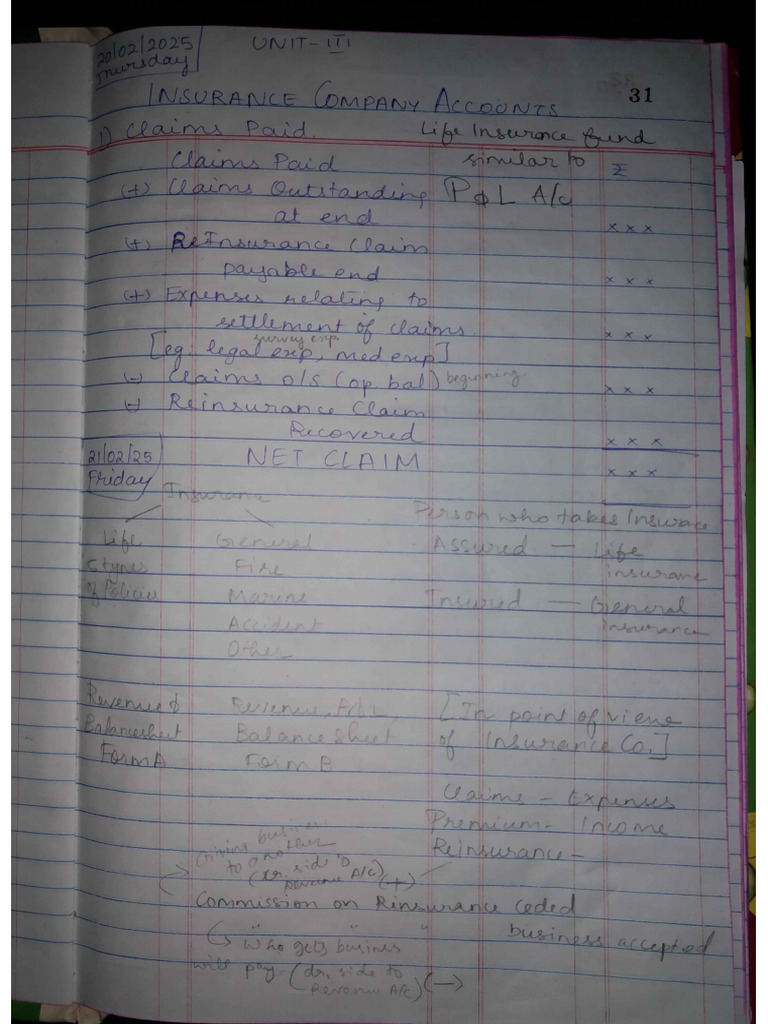 20/02/2025
Thursday
UNIT-III
31
INSURANCE COMPANY ACCOUNTS
1) Claims Paid.
Life Insurance fund
similar to
P & L A/c
Claims Paid
₹
(+) Claims Outstanding
at end
x x x
(+) ReInsurance Claim
payable end
x x x
(+) Expenses relating to
settlement of claims
x x x
survey exp.
[eg. legal exp, med exp]
(-) Claims o/s (op. bal) beginning
x x x
(-) Reinsurance Claim
Recovered
x x x
21/02/25
Friday
NET CLAIM
x x x
Insurance
Life
General
types
of Policies
Fire
Marine
Accident
Other
Person who takes Insurace
Assured — Life
insurane
Insured — General
insurance
Revenue &
Balancesheet
Form A
Revenue, P&L,
Balance Sheet
Form B
[In point of view
of Insurance Co.]
Claims - Expenses
Premium - Income
Reinsurance -
Giving business
to another
side
Revenue A/c) (+)
Commission on Rinsurance Ceded
" " " business accepted
Who gets busines
will pay (dr. side to
Revenue A/c) (-)